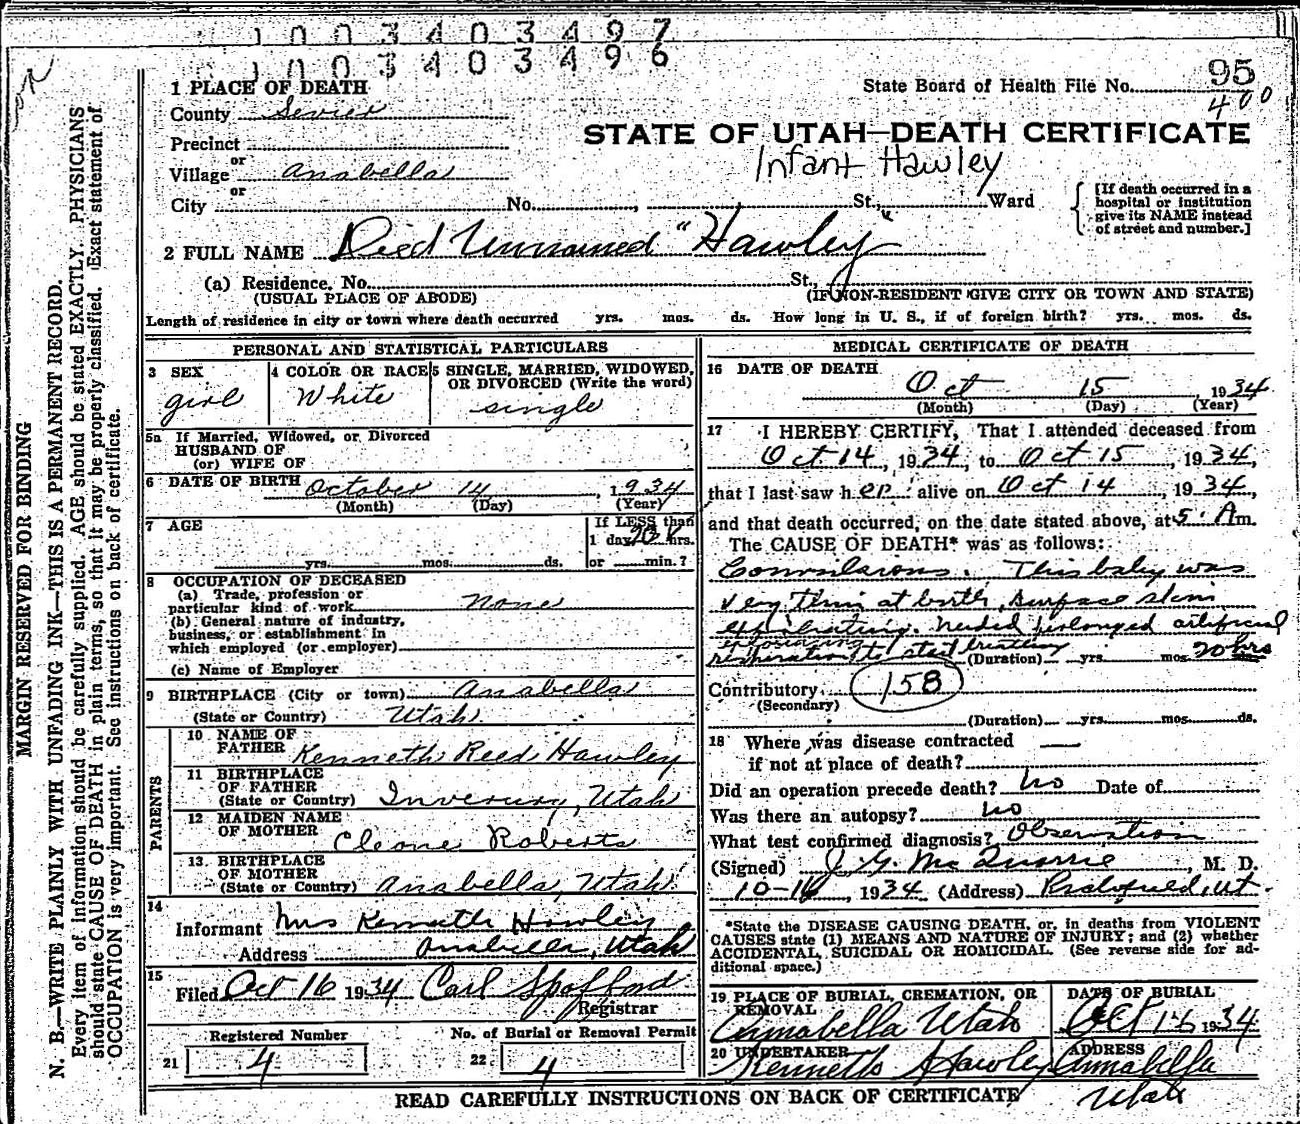 1003403497
1003403496
1 PLACE OF DEATH
State Board of Health File No. 95
400
County Sevier
STATE OF UTAH—DEATH CERTIFICATE
Precinct
Infant Hawley
or
Village Anabella
or
City No. , St., Ward
[If death occurred in a hospital or institution give its NAME instead of street and number.]
2 FULL NAME Reed Unnamed "Hawley"
(a) Residence. No. St.,
(USUAL PLACE OF ABODE) (IF NON-RESIDENT GIVE CITY OR TOWN AND STATE)
Length of residence in city or town where death occurred yrs. mos. ds. How long in U. S., if of foreign birth? yrs. mos. ds.
PERSONAL AND STATISTICAL PARTICULARS
3 SEX 4 COLOR OR RACE 5 SINGLE, MARRIED, WIDOWED, OR DIVORCED (Write the word)
girl White single
5a If Married, Widowed, or Divorced
HUSBAND OF
(or) WIFE OF
6 DATE OF BIRTH October 14, 1934
(Month) (Day) (Year)
7 AGE If LESS than
1 day, 20 hrs.
yrs. mos. ds. or min.?
8 OCCUPATION OF DECEASED
(a) Trade, profession or
particular kind of work none
(b) General nature of industry,
business, or establishment in
which employed (or employer)
(c) Name of Employer
9 BIRTHPLACE (City or town) Anabella
(State or Country) Utah
PARENTS
10 NAME OF
FATHER Kenneth Reed Hawley
11 BIRTHPLACE
OF FATHER
(State or Country) Inverury, Utah
12 MAIDEN NAME
OF MOTHER Cleone Roberts
13 BIRTHPLACE
OF MOTHER
(State or Country) Anabella, Utah
14
Informant Mrs Kenneth Hawley
Address Anabella, Utah
15
Filed Oct 16 1934 Carl Spafford
Registrar
Registered Number No. of Burial or Removal Permit
21 4 22 4
MEDICAL CERTIFICATE OF DEATH
16 DATE OF DEATH
Oct 15 1934
(Month) (Day) (Year)
17 I HEREBY CERTIFY, That I attended deceased from
Oct 14, 1934, to Oct 15, 1934,
that I last saw her alive on Oct 14, 1934,
and that death occurred, on the date stated above, at 5 Am.
The CAUSE OF DEATH* was as follows:
This baby was
very thin at birth, surface skin
Needed prolonged artificial
respiration to start breathing
(Duration) yrs. mos. 20 hrs
Contributory 158
(Secondary)
(Duration) yrs. mos. ds.
18 Where was disease contracted
if not at place of death?
Did an operation precede death? no Date of
Was there an autopsy? no
What test confirmed diagnosis? Observation
(Signed) J. G. McQuarrie, M. D.
10-16, 1934 (Address) Richfield, Ut.
*State the DISEASE CAUSING DEATH, or, in deaths from VIOLENT
CAUSES state (1) MEANS AND NATURE OF INJURY; and (2) whether
ACCIDENTAL, SUICIDAL OR HOMICIDAL. (See reverse side for ad-
ditional space.)
19 PLACE OF BURIAL, CREMATION, OR REMOVAL DATE OF BURIAL
Annabella Utah Oct 16 1934
20 UNDERTAKER ADDRESS
Kenneth Hawley Annabella
Utah
READ CAREFULLY INSTRUCTIONS ON BACK OF CERTIFICATE
MARGIN RESERVED FOR BINDING
N. B.—WRITE PLAINLY WITH UNFADING INK—THIS IS A PERMANENT RECORD.
Every item of information should be carefully supplied. AGE should be stated EXACTLY. PHYSICIANS
should state CAUSE OF DEATH in plain terms, so that it may be properly classified. Exact statement of
OCCUPATION is very important. See instructions on back of certificate.